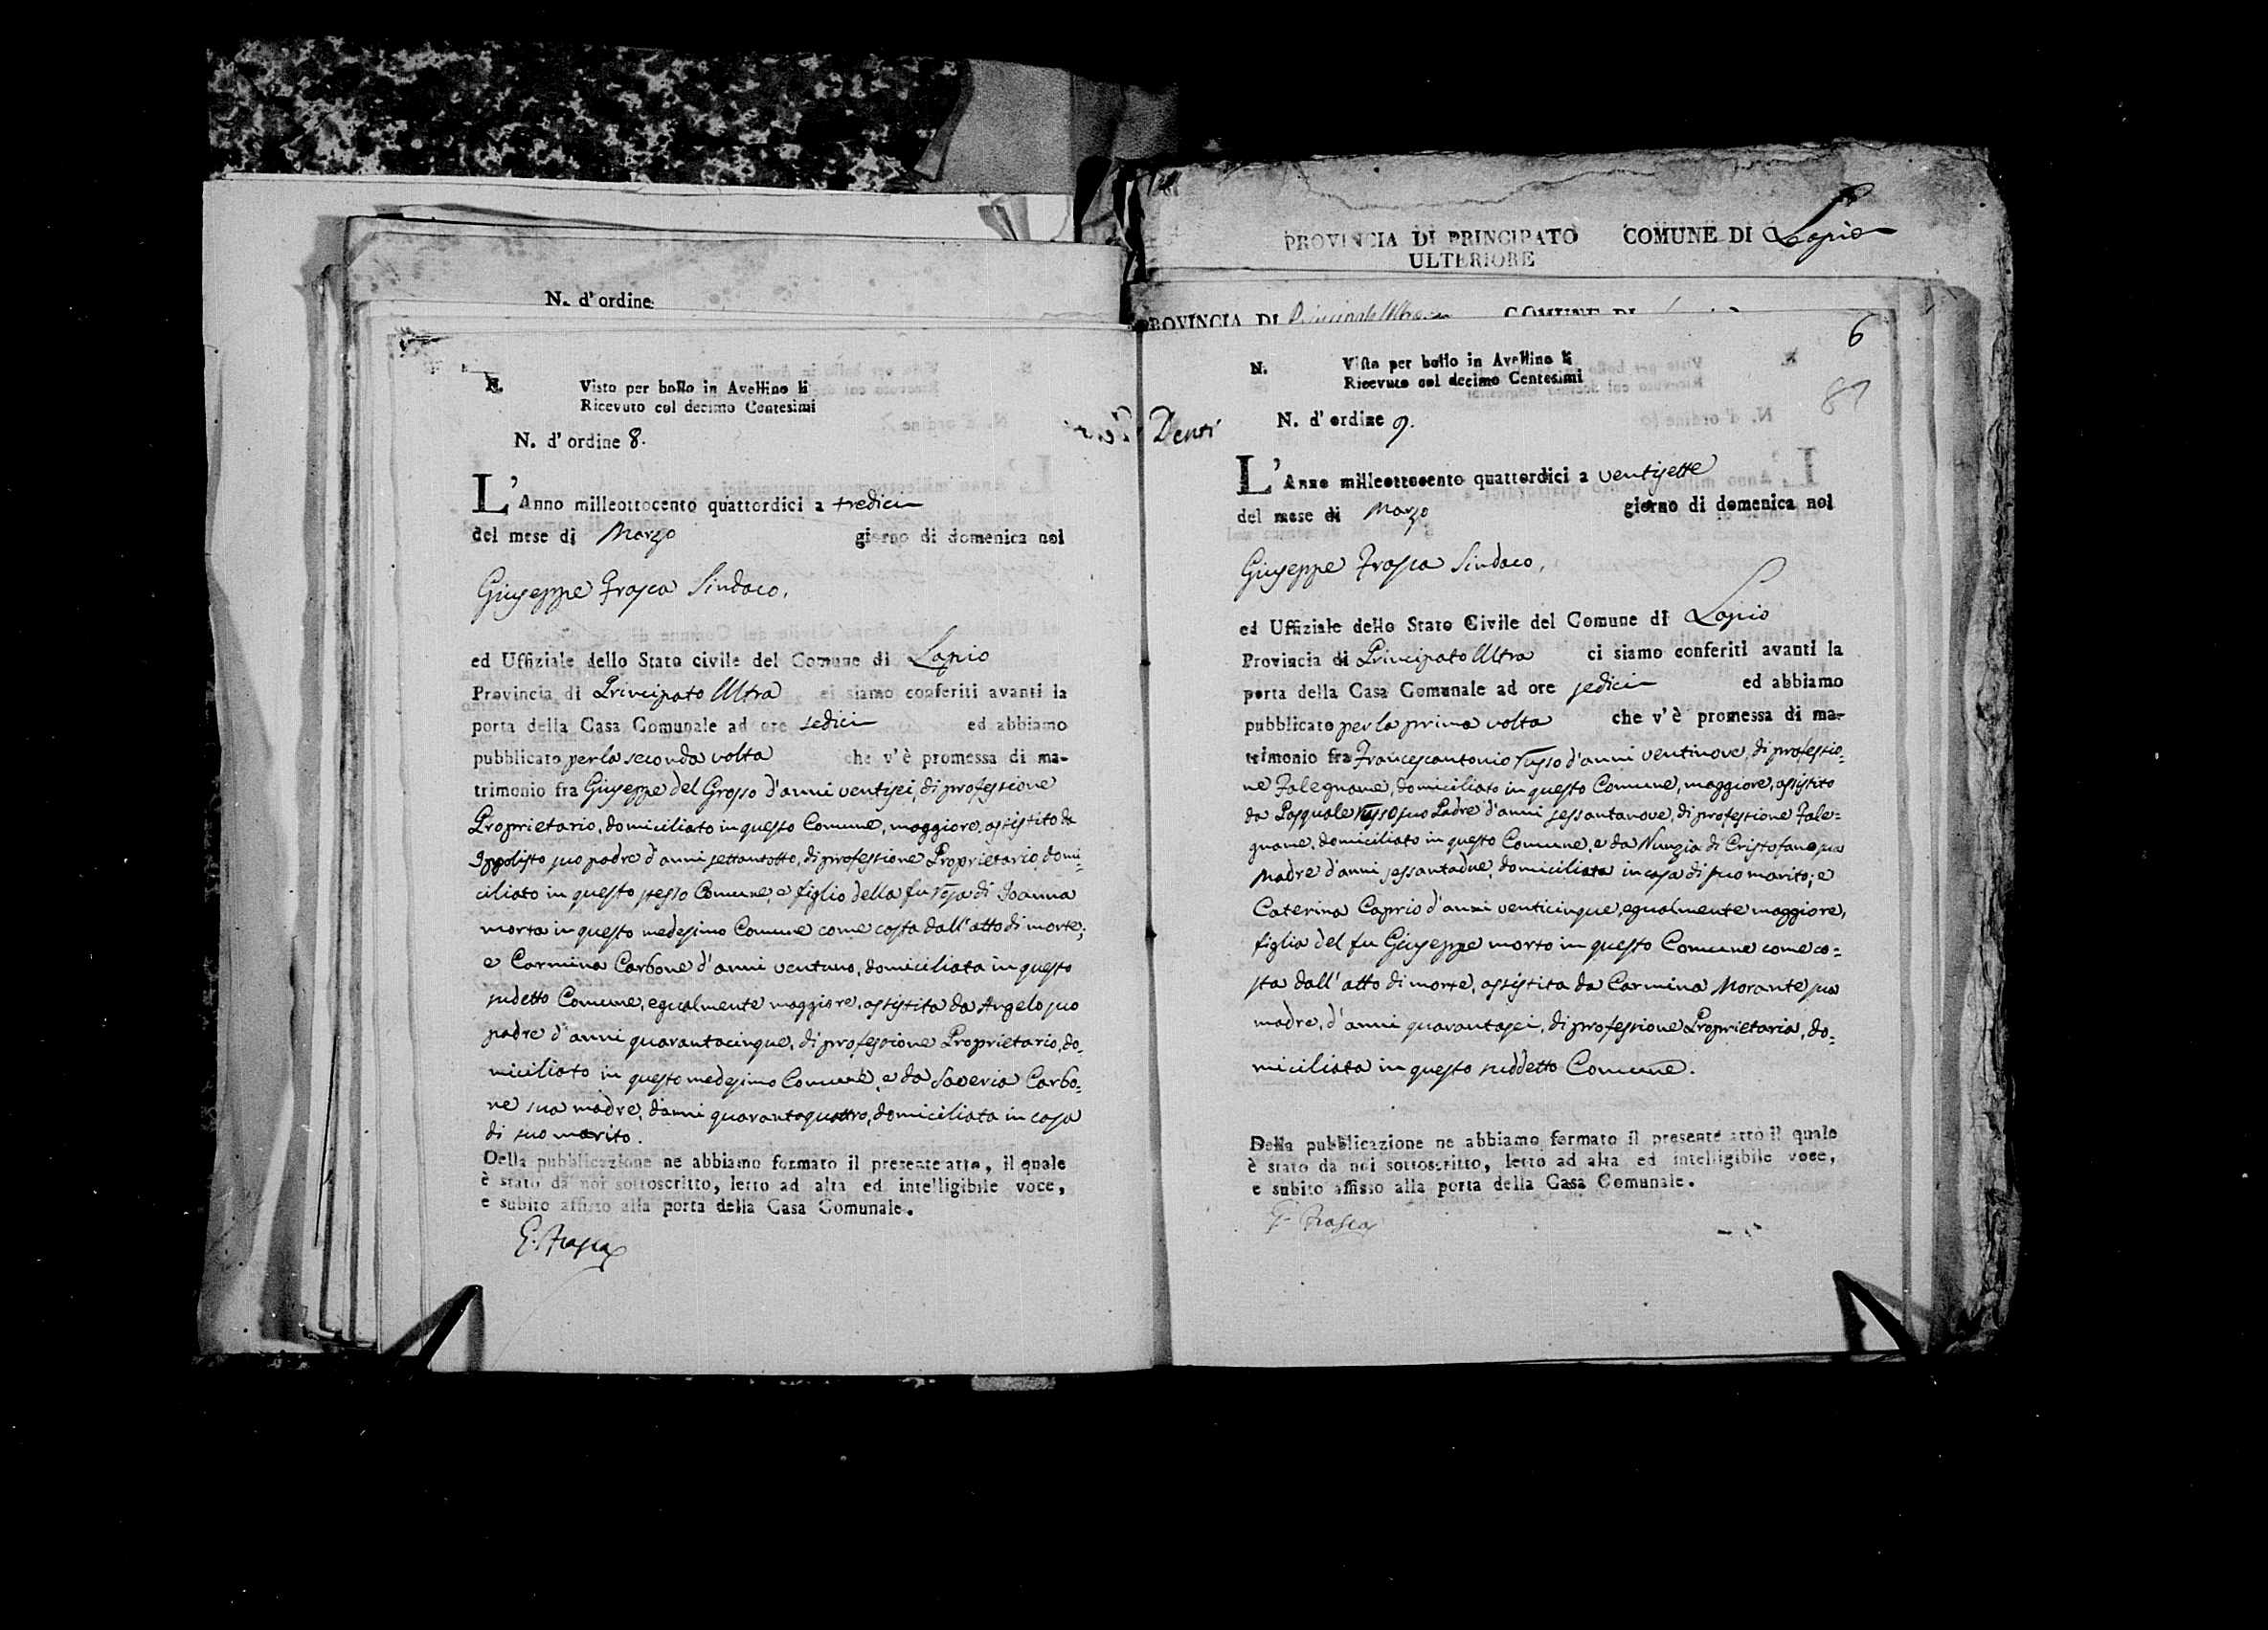 N. d'ordine
N. Visto per bollo in Avellino li
Ricevuto col decimo Centesimi
N. d'ordine 8.
L'Anno milleottocento quattordici a tredici
del mese di Marzo giorno di domenica noi
Giuseppe Frasca Sindaco,
ed Uffiziale dello Stato civile del Comune di Lapio
Provincia di Principato Ultra ci siamo conferiti avanti la
porta della Casa Comunale ad ore sedici ed abbiamo
pubblicato per la seconda volta che v'è promessa di ma-
trimonio fra Giuseppe del Grosso d'anni ventisei, di professione
Proprietario, domiciliato in questo Comune, maggiore, assistito da
Ippolisto suo padre d'anni settantotto, di professione Proprietario, domi=
ciliato in questo stesso Comune, e figlio della fu Rosa di Joanna
morta in questo medesimo Comune come costa dall'atto di morte;
e Carmina Carbone d'anni ventuno, domiciliata in questo
sudetto Comune, egualmente maggiore, assistita da Angelo suo
padre d'anni quarantacinque, di professione Proprietario, do=
miciliato in questo medesimo Comune, e da Saveria Carbo=
ne sua madre, d'anni quarantaquattro, domiciliata in casa
di suo marito.
Della pubblicazione ne abbiamo formato il presente atto, il quale
è stato da noi sottoscritto, letto ad alta ed intelligibile voce,
e subito affisso alla porta della Casa Comunale.
G. Frasca
Denti
PROVINCIA DI PRINCIPATO COMUNE DI Lapio
ULTERIORE
PROVINCIA DI Principato Ultra COMUNE DI
6
87
N. Visto per bollo in Avellino li
Ricevuto col decimo Centesimi
N. d'ordine 9.
L'Anno milleottocento quattordici a ventisette
del mese di Marzo giorno di domenica noi
Giuseppe Frasca Sindaco,
ed Uffiziale dello Stato Civile del Comune di Lapio
Provincia di Principato Ultra ci siamo conferiti avanti la
porta della Casa Comunale ad ore sedici ed abbiamo
pubblicato per la prima volta che v'è promessa di ma-
trimonio fra Francescantonio Russo d'anni ventinove, di professio=
ne Falegname, domiciliato in questo Comune, maggiore, assistito
da Pasquale Russo suo Padre d'anni sessantanove, di professione Fale=
gname, domiciliato in questo Comune, e da Nunzia di Cristofano sua
Madre d'anni sessantadue, domiciliata in casa di suo marito; e
Caterina Caprio d'anni venticinque, egualmente maggiore,
figlia del fu Giuseppe morto in questo Comune come co=
sta dall'atto di morte, assistita da Carmina Morante sua
madre, d'anni quarantasei, di professione Proprietaria, do=
miciliata in questo suddetto Comune.
Della pubblicazione ne abbiamo formato il presente atto il quale
è stato da noi sottoscritto, letto ad alta ed intelligibile voce,
e subito affisso alla porta della Casa Comunale.
G. Frasca